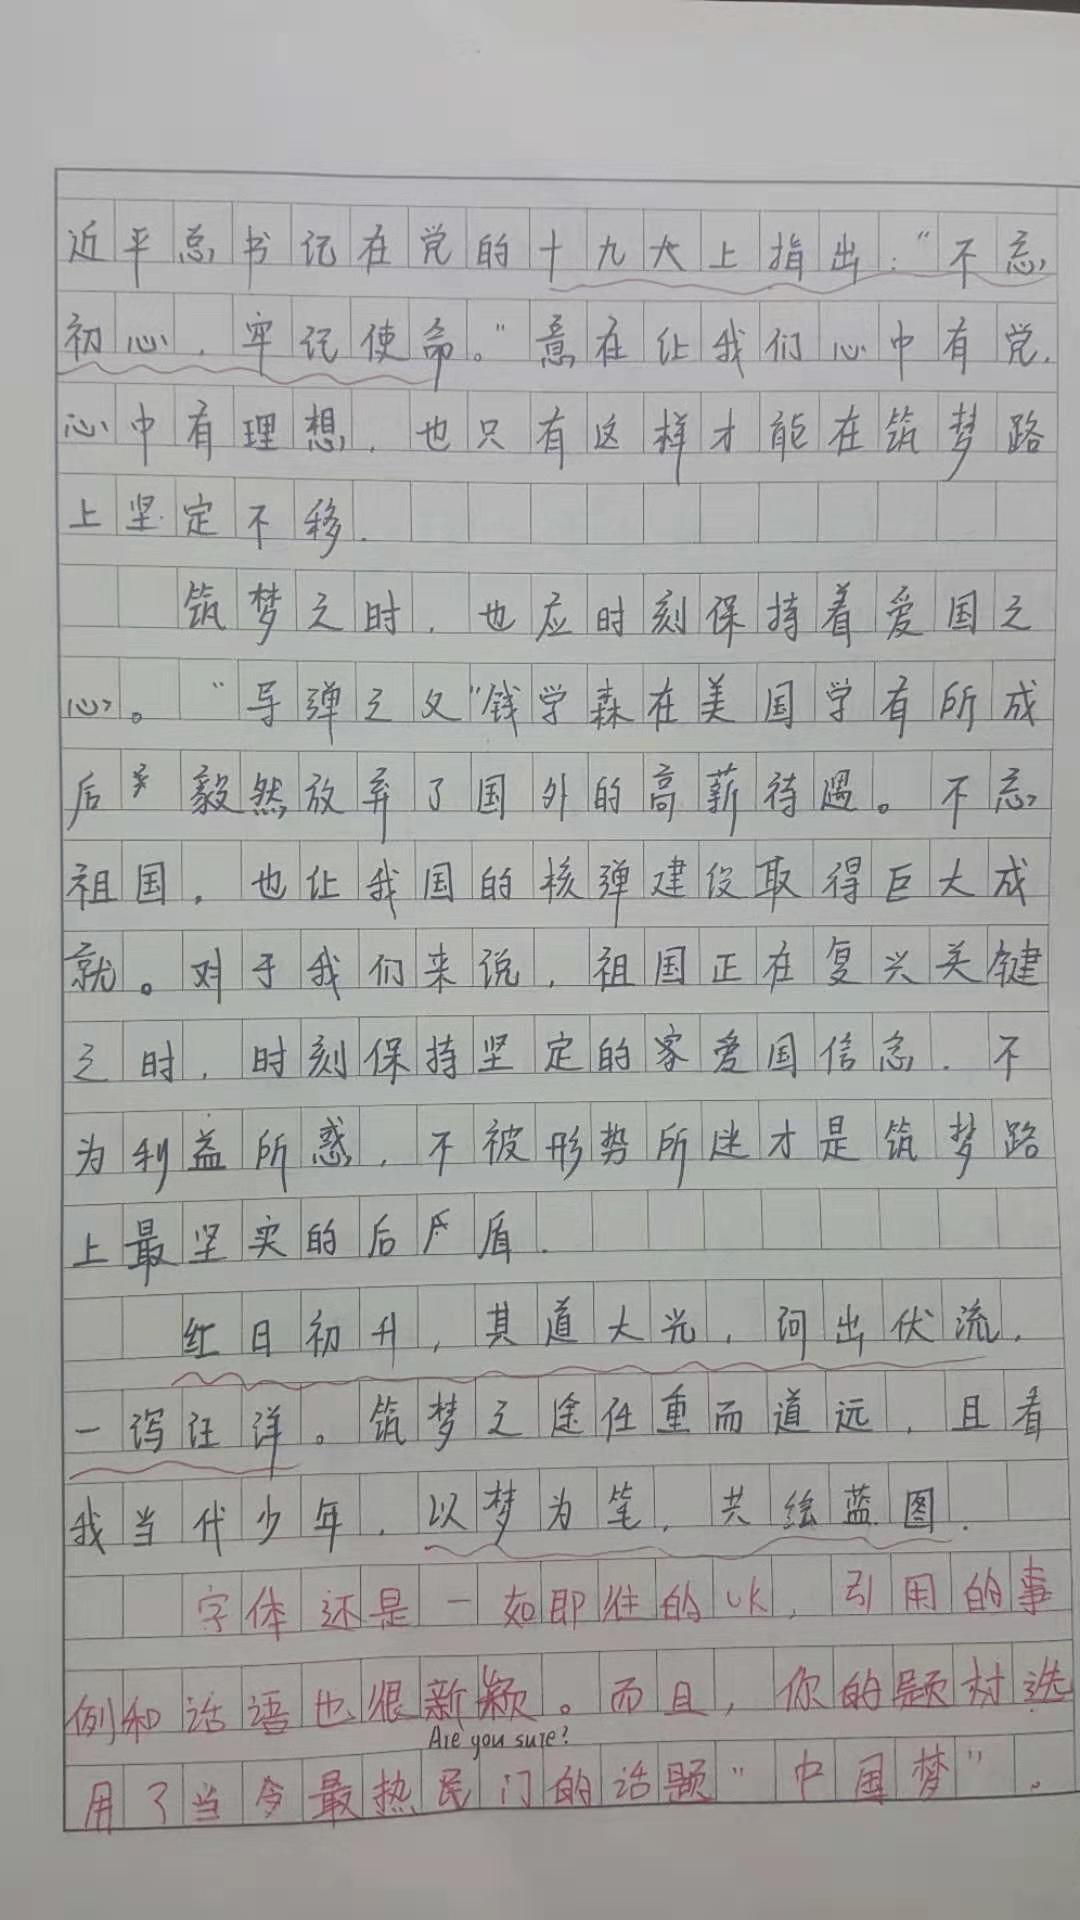 近平总书记在党的十九大上指出："不忘
初心，牢记使命。"意在让我们心中有党，
心中有理想，也只有这样才能在筑梦路
上坚定不移．
筑梦之时，也应时刻保持着爱国之
心。"导弹之父"钱学森在美国学有所成
后毅然放弃了国外的高薪待遇。不忘
祖国，也让我国的核弹建设取得巨大成
就。对于我们来说，祖国正在复兴关键
之时，时刻保持坚定的家爱国信念．不
为利益所惑，不被形势所迷才是筑梦路
上最坚实的后盾．
红日初升，其道大光，河出伏流，
一泻汪洋。筑梦之途任重而道远，且看
我当代少年，以梦为笔，共绘蓝图．
字体还是一如即往的ok，引用的事
例和话语也很新颖。而且，你的题材选
Are you sure?
用了当今最热门的话题"中国梦"。